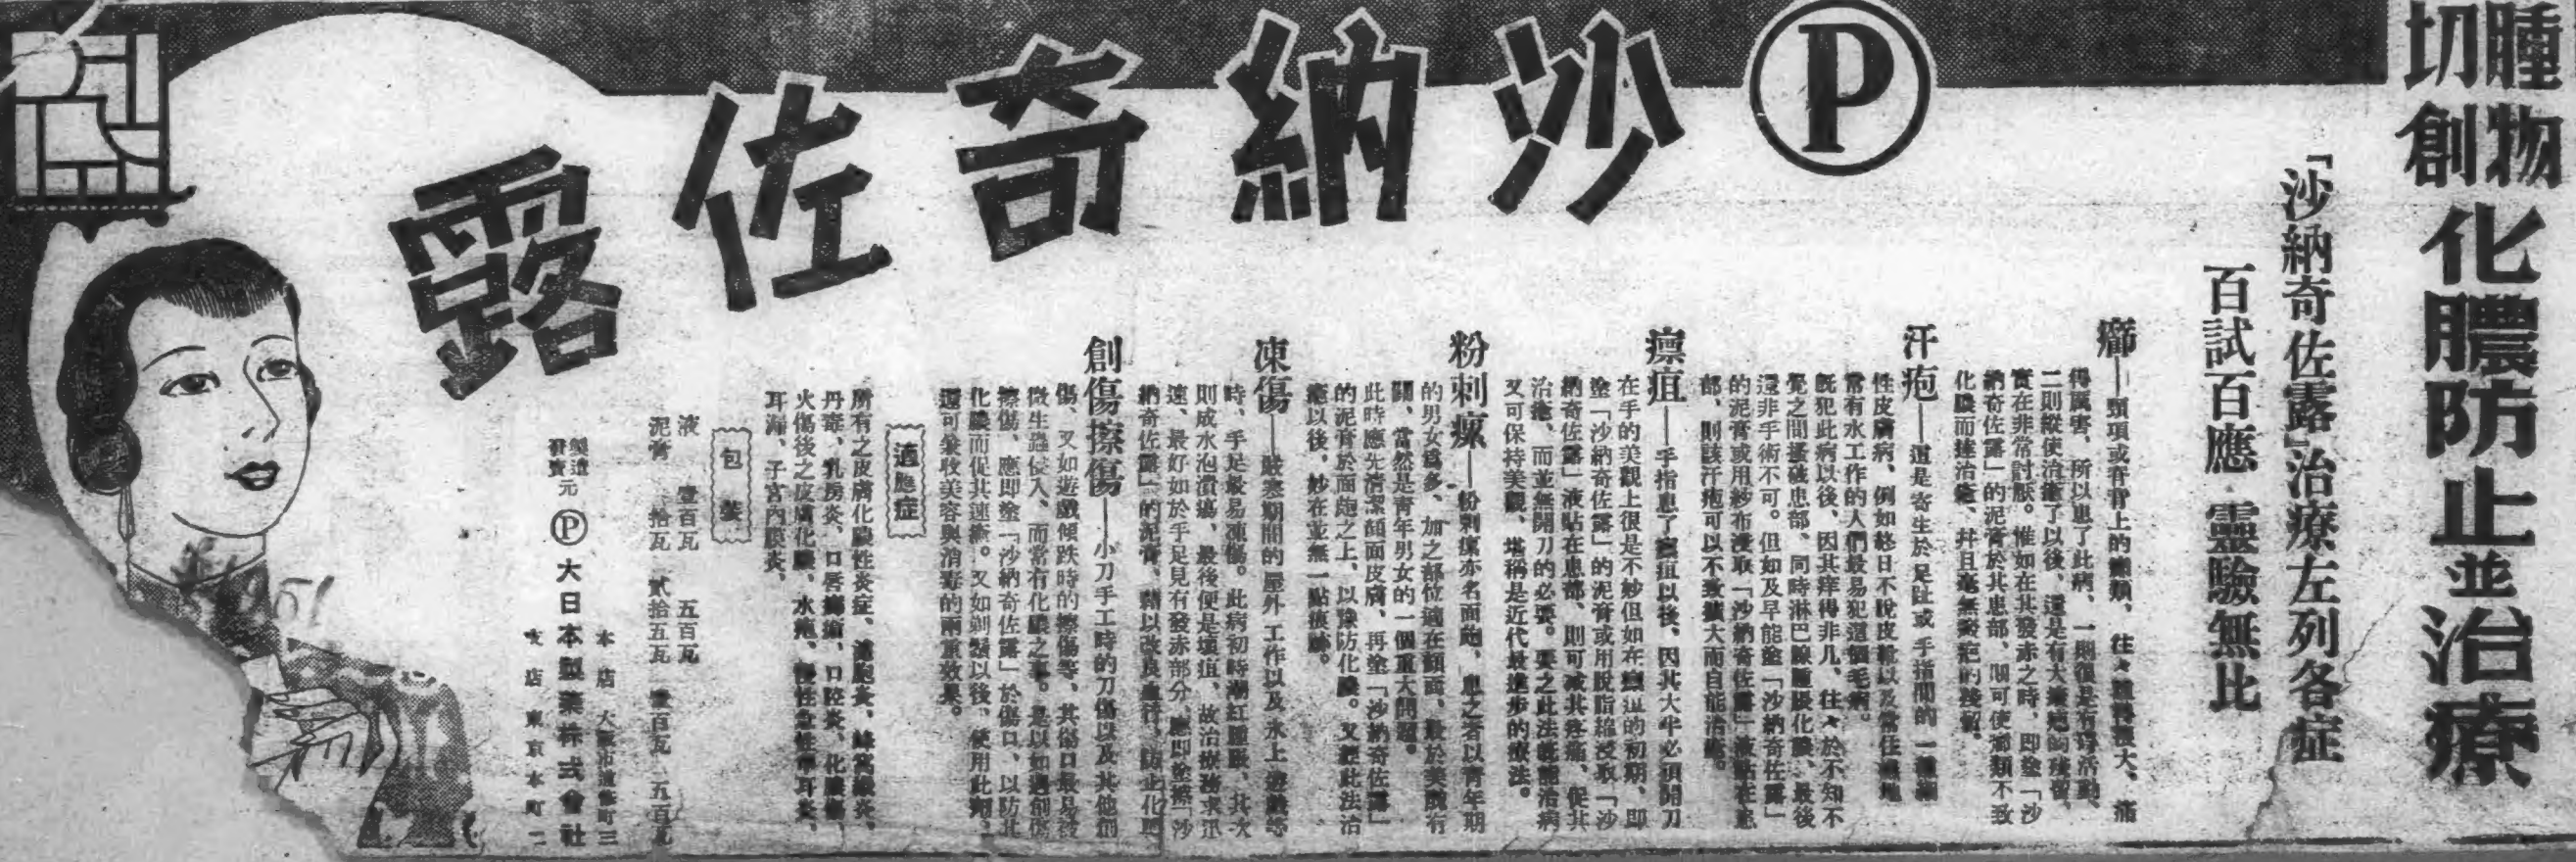 腫物
切創
化膿防止並治療
「沙納奇佐露」治療左列各症
百試百應 靈驗無比
P
沙納奇佐露
癤—頸項或脊背上的癤類、往々腫得很大、痛
得厲害、所以患了此病、一則很是有碍活動、
二則縱使消癒了以後、還是有大瘢痕的殘留、
實在非常討厭。惟如在其發赤之時、即塗「沙
納奇佐露」的泥膏於其患部、則可使癤類不致
化膿而達治癒、幷且毫無瘢疤的殘留。
汗疱—這是寄生於足趾或手指間的一種濕
性皮膚病、例如終日不脫皮靴以及常住濕地
常有水工作的人們最易犯這個毛病。
旣犯此病以後、因其痒得非凡、往々於不知不
覺之間搔破患部、同時淋巴腺腫脹化膿、最後
還非手術不可。但如及早能塗「沙納奇佐露」
的泥膏或用紗布浸取「沙納奇佐露」液貼在患
部、則該汗疱可以不致擴大而自能治癒。
瘭疽—手指患了瘭疽以後、因其大半必須開刀
在手的美觀上很是不妙但如在瘭疽的初期、即
塗「沙納奇佐露」的泥膏或用脫脂綿浸取「沙
納奇佐露」液貼在患部、則可減其疼痛、促其
治癒、而並無開刀的必要。要之此法旣能治病
又可保持美觀、堪稱是近代最進步的療法。
粉刺瘰—粉刺瘰亦名面皰、患之者以青年期
的男女爲多、加之部位適在顏面、最於美觀有
關、當然是青年男女的一個重大問題。
此時應先清潔顏面皮膚、再塗「沙納奇佐露」
的泥膏於面皰之上、以豫防化膿。又經此法治
癒以後、妙在並無一點痕跡。
凍傷—嚴寒期間的屋外工作以及水上遊戲等
時、手足最易凍傷。此病初時潮紅腫脹、其次
則成水泡潰瘍、最後便是壞疽、故治療務求迅
速、最好如於手足見有發赤部分、應即塗擦「沙
納奇佐露」的泥膏、藉以改良血行、防止化膿
創傷擦傷—小刀手工時的刀傷以及其他創
傷、又如遊戲傾跌時的擦傷等、其傷口最易被
微生蟲侵入、而常有化膿之事。是以如遇創傷
擦傷、應即塗「沙納奇佐露」於傷口、以防其
化膿而促其速癒。又如剃鬚以後、使用此劑、
還可兼收美容與消毒的兩重效果。
適應症
所有之皮膚化膿性炎症、毛囊炎、蜂窩織炎、
丹毒、乳房炎、口唇瘍瘡、口腔炎、化膿傷
火傷後之皮膚化膿、水疱、慢性急性中耳炎、
耳漏、子宮內膜炎、
包裝
液 壹百瓦 五百瓦
泥膏 拾瓦 貳拾五瓦 壹百瓦 五百瓦
製造
發賣元
P 大日本製藥株式會社
本店 大阪市道修町三
支店 東京本町二